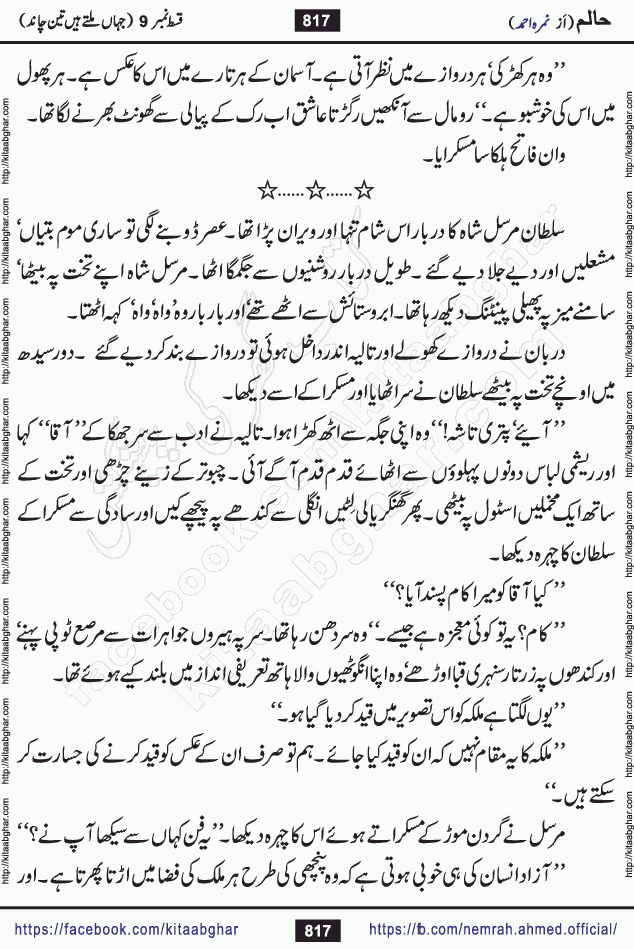 حالم (از نمرہ احمد)
817
قسط نمبر 9 (جہاں ملتے ہیں تین چاند)
’’وہ ہر کھڑکی‘ ہر دروازے میں نظر آتی ہے۔ آسمان کے ہر تارے میں اس کا عکس ہے۔ ہر پھول
میں اس کی خوشبو ہے۔‘‘ رومال سے آنکھیں رگڑتا عاشق اب رک کے پیالی سے گھونٹ بھرنے لگا تھا۔
وان فاتح ہلکا سا مسکرایا۔
☆......☆......☆
سلطان مرسل شاہ کا دربار اس شام تنہا اور ویران پڑا تھا۔ عصر ڈوبنے لگی تو ساری موم بتیاں‘
مشعلیں اور دیے جلا دیے گئے ۔ طویل دربار روشنیوں سے جگمگا اٹھا۔ مرسل شاہ اپنے تخت پہ بیٹھا‘
سامنے میز پہ پھیلی پینٹنگ دیکھ رہا تھا۔ ابرو ستائش سے اٹھے تھے‘ اور بار بار وہ ’واہ‘ واہ‘ کہہ اٹھتا۔
دربان نے دروازے کھولے اور تالیہ اندر داخل ہوئی تو دروازے بند کر دیے گئے ۔ دور سیدھ
میں اونچے تخت پہ بیٹھے سلطان نے سر اٹھایا اور مسکرا کے اسے دیکھا۔
’’آیئے‘ پتری تاشہ!‘‘ وہ اپنی جگہ سے اٹھ کھڑا ہوا۔ تالیہ نے ادب سے سر جھکا کے ’’آقا‘‘ کہا
اور ریشمی لباس دونوں پہلوؤں سے اٹھائے قدم قدم آگے آئی ۔ چبوترے کے زینے چڑھی اور تخت کے
ساتھ ایک مخملیں اسٹول پہ بیٹھی ۔ پھر گھنگریالی لٹیں انگلی سے کندھے پہ پیچھے کیں اور سادگی سے مسکرا کے
سلطان کا چہرہ دیکھا۔
’’کیا آقا کو میرا کام پسند آیا؟‘‘
’’کام؟ یہ تو کوئی معجزہ ہے جیسے۔‘‘ وہ سر دھن رہا تھا۔ سر پہ ہیروں جواہرات سے مرصع ٹوپی پہنے‘
اور کندھوں پہ زرتار سنہری قبا اوڑھے‘ وہ اپنا انگوٹھیوں والا ہاتھ تعریفی انداز میں بلند کیے ہوئے تھا۔
’’یوں لگتا ہے ملکہ کو اس تصویر میں قید کر دیا گیا ہو۔‘‘
’’ملکہ کا یہ مقام نہیں کہ ان کو قید کیا جائے ۔ ہم تو صرف ان کے عکس کو قید کرنے کی جسارت کر
سکتے ہیں ۔‘‘
مرسل نے گردن موڑ کے مسکراتے ہوئے اس کا چہرہ دیکھا۔ ’’یہ فن کہاں سے سیکھا آپ نے؟‘‘
’’آزاد انسان کی ہی خوبی ہوتی ہے کہ وہ پنچھی کی طرح ہر ملک کی فضا میں اڑتا پھرتا ہے۔ اور
https://facebook.com/kitaabghar
817
https://fb.com/nemrah.ahmed.official/
http://kitaabghar.com http://kitaabghar.com http://kitaabghar.com http://kitaabghar.com http://kitaabghar.com http://kitaabghar.com http://kitaabghar.com http://kitaabghar.com
http://kitaabghar.com http://kitaabghar.com http://kitaabghar.com http://kitaabghar.com http://kitaabghar.com http://kitaabghar.com http://kitaabghar.com http://kitaabghar.com
facebook.com/kitaabghar
kitaabghar.com